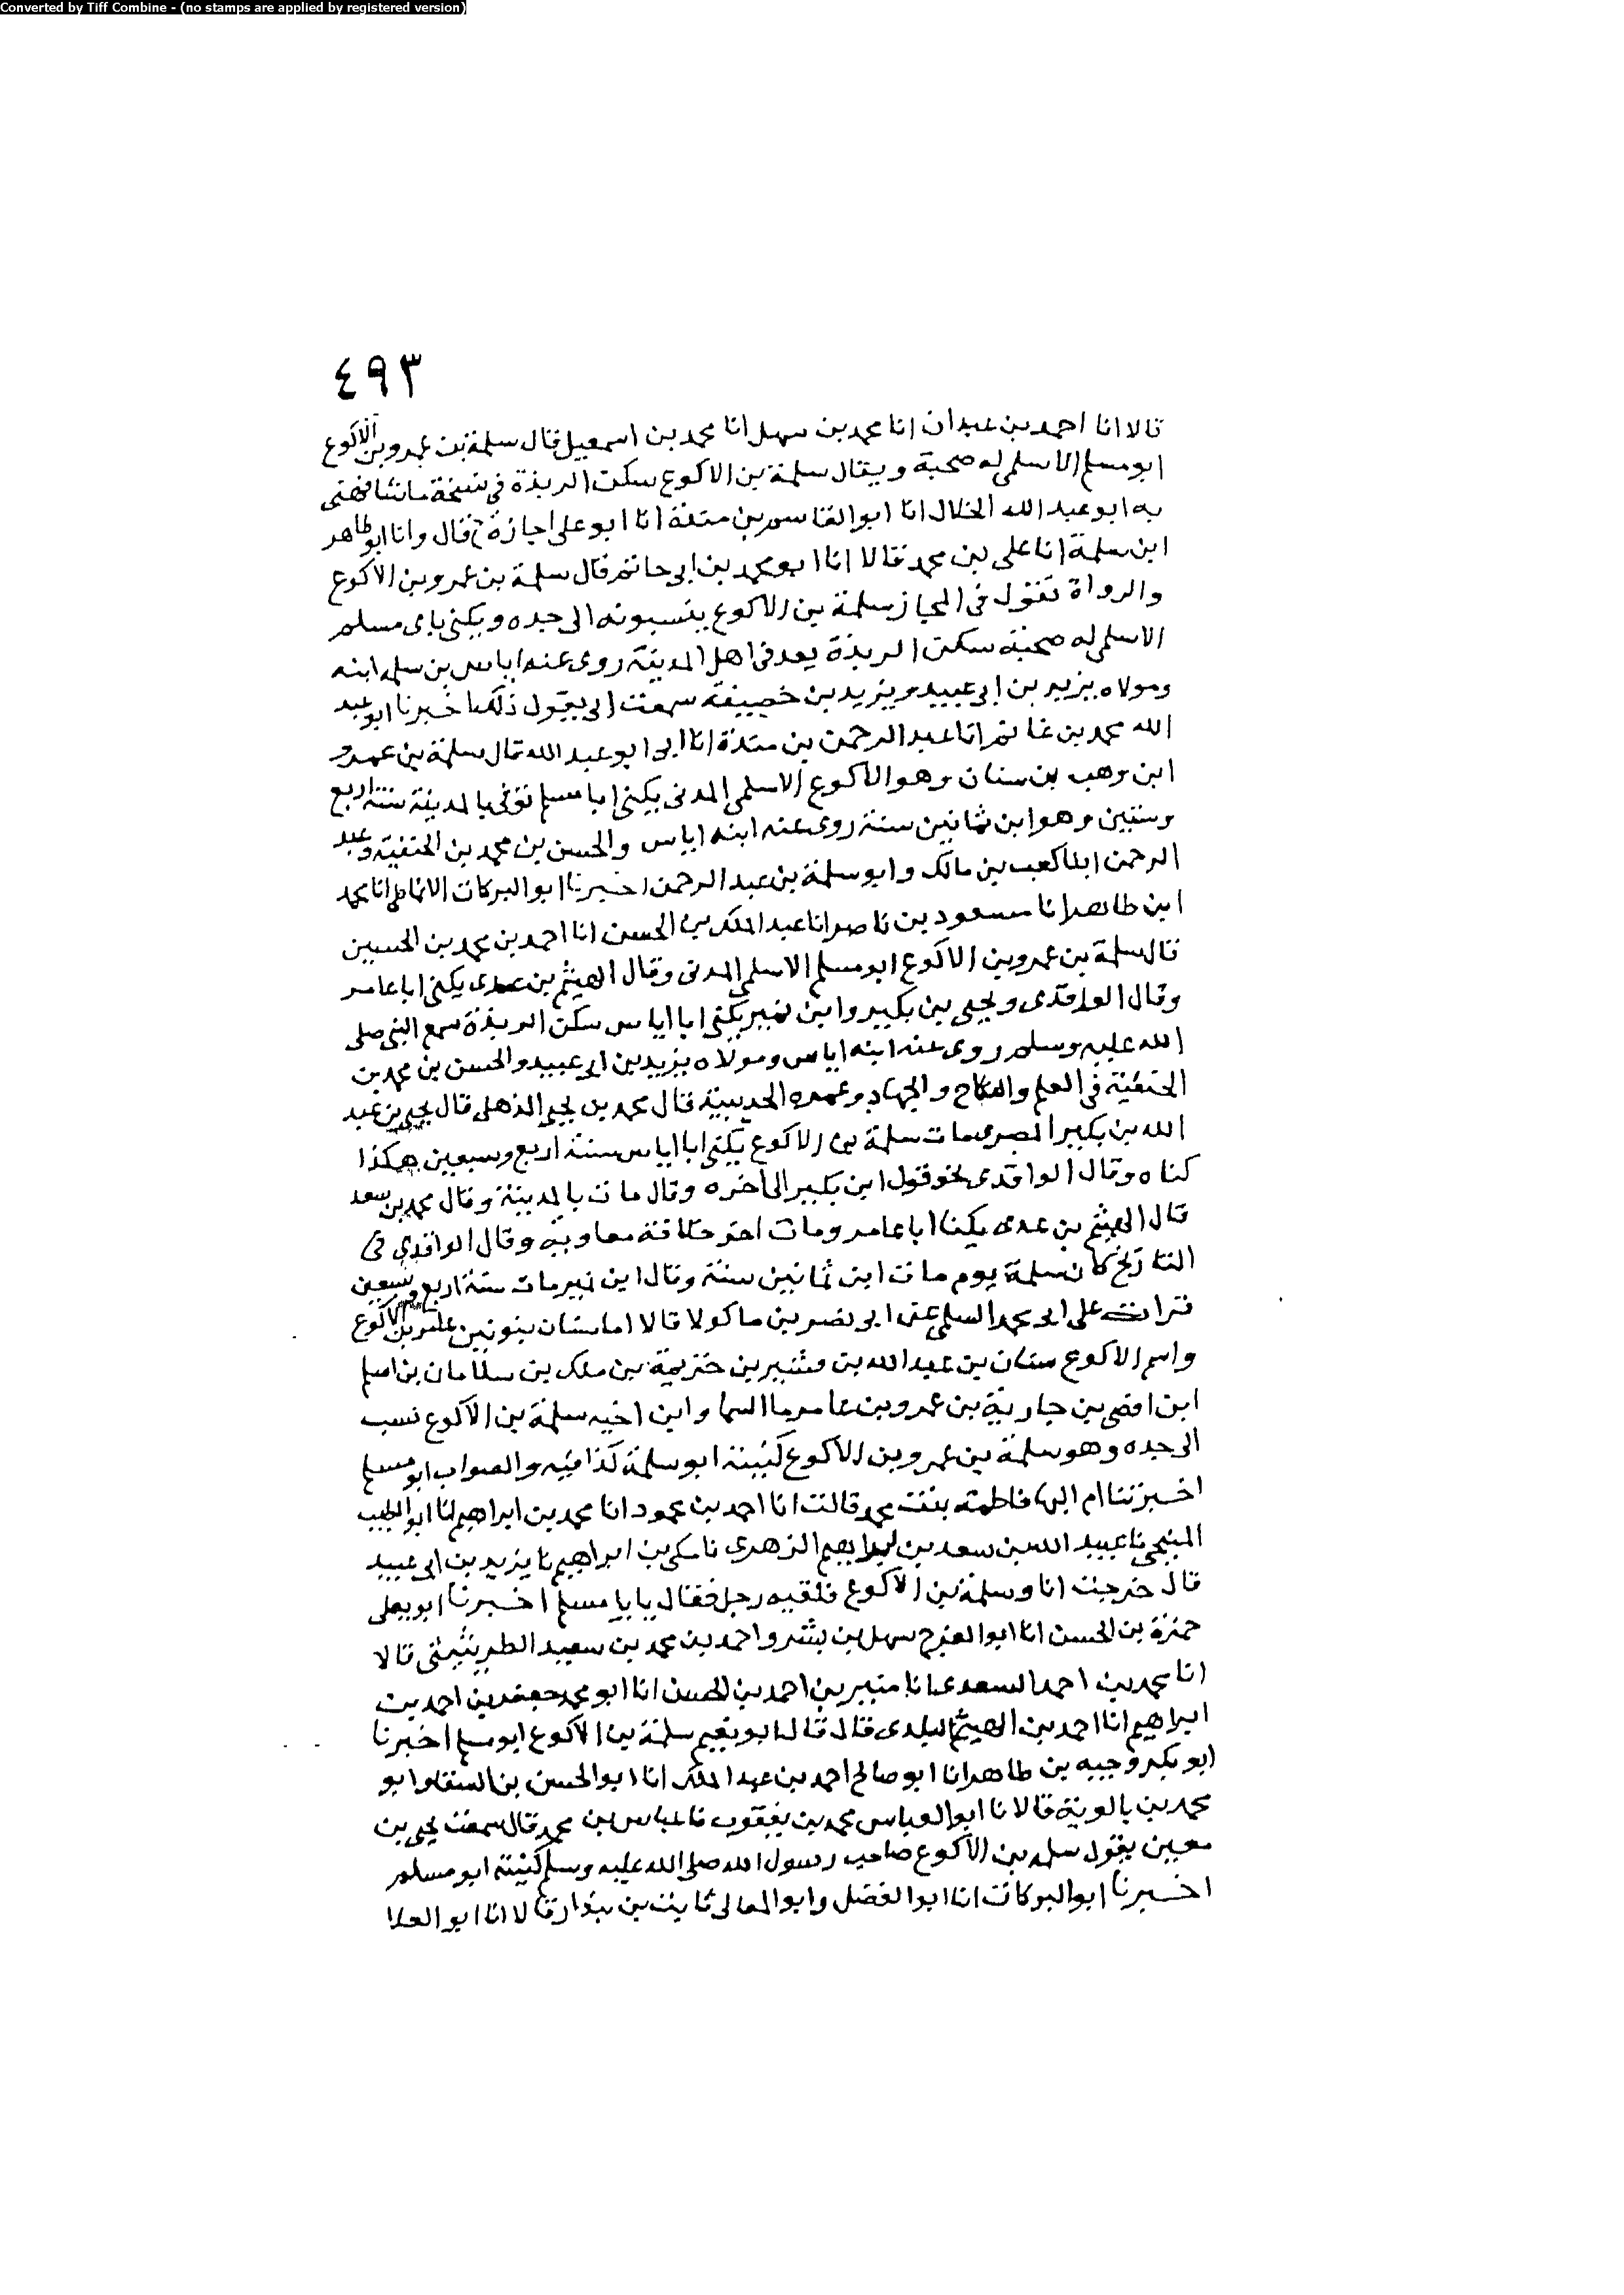 Converted by Tiff Combine - (no stamps are applied by registered version)
٤٩٣
قالا انا احمد بن عبدان انا محمد بن سهل انا محمد بن اسمعيل قال سلمة بن عمرو بن الاكوع
ابو مسلم الاسلمى له صحبة ويقال سلمة بن الاكوع سكن الربذة في نسخة ما شافهنى
به ابو عبد الله الخلال انا ابو القاسم بن مندة انا ابو على اجازة ح قال وانا ابو طاهر
ابن سلمة انا على بن محمد قالا انا ابو محمد بن ابى حاتم قال سلمة بن عمرو بن الاكوع
والرواة تقول فى المجاز سلمة بن الاكوع ينسبونه الى جده ويكنى بابى مسلم
الاسلمى له صحبة سكن الربذة يعد فى اهل المدينة روى عنه اياس بن سلمه ابنه
ومولاه يزيد بن ابى عبيد ويزيد بن خصيفة سمعت ابى يقول ذلك اخبرنا ابو عبد
الله محمد بن غانم انا عبد الرحمن بن مندة انا ابى ابو عبد الله قال سلمة بن عمرو
ابن وهب بن سنان وهو الاكوع الاسلمى المدنى يكنى ابا مسلم توفى بالمدينة سنة اربع
وستين وهو ابن ثمانين سنة روى عنه ابنه اياس والحسن بن محمد بن الحنفية وعبد
الرحمن ابنا كعب بن مالك وابو سلمة بن عبد الرحمن اخبرنا ابو البركات الانماطى انا محمد
ابن طاهر انا مسعود بن ناصر انا عبد الملك بن الحسن انا احمد بن محمد بن الحسين
قال سلمة بن عمرو بن الاكوع ابو مسلم الاسلمى المدنى وقال الهيثم بن عدى يكنى ابا عامر
وقال الواقدى ويحيى بن بكير وابن نمير يكنى ابا اياس سكن الربذة سمع النبى صلى
الله عليه وسلم روى عنه ابنه اياس ومولاه يزيد بن ابى عبيد والحسن بن محمد بن
الحنفية فى العلم والنكاح والجهاد وعمره الحديبية قال محمد بن يحيى الذهلى قال يحيى بن عبد
الله بن بكير المصرى مات سلمة بن الاكوع يكنى ابا اياس سنة اربع وسبعين هكذا
كناه وقال الواقدى نحو قول ابن بكير الى اخره وقال مات بالمدينة وقال محمد بن سعد
قال الهيثم بن عدى يكنا ابا عامر ومات اخر خلافة معاوية وقال الواقدي فى
التاريخ كان سلمة يوم مات ابن ثمانين سنة وقال ابن نمير مات سنة اربع وسبعين
قرات على ابى محمد السلمى عن ابى نصر بن ماكولا قالا اما سنان بنونين عامر بن الاكوع
واسم الاكوع سنان بن عبد الله بن قشير بن خزيمة بن ملك بن سلامان بن اسلم
ابن افصى بن حارثة بن عمرو بن عامر ما السما وابن اخيه سلمة بن الاكوع نسب
الى جده وهو سلمة بن عمرو بن الاكوع كنيته ابو سلمة كذا فيه والصواب ابو مسلم
اخبرتنا ام البها فاطمة بنت محمد قالت انا احمد بن محمود انا محمد بن ابراهيم انا ابو الطيب
المنبجى نا عبيد الله بن سعد بن ابراهيم الزهرى نا مكى بن ابراهيم نا يزيد بن ابى عبيد
قال خرجت انا وسلمة بن الاكوع فلقيه رجل فقال يا با مسلم اخبرنا ابو يعلى
حمزة بن الحسن انا ابو الفرج سهل بن بشر واحمد بن محمد بن سعيد الطريثيثى قالا
انا محمد بن احمد السعدى انا منير بن احمد بن الحسن انا ابو محمد جعفر بن احمد بن
ابراهيم انا احمد بن الهيثم البلدى قال قال ابو نعيم سلمة بن الاكوع ابو مسلم اخبرنا
ابو بكر وجيه بن طاهر انا ابو صالح احمد بن عبد الملك انا ابو الحسن بن السقا وابو
محمد بن بالوية قالا نا ابو العباس محمد بن يعقوب نا عباس بن محمد قال سمعت يحيى بن
معين يقول سلمه بن الاكوع صاحب رسول الله صلى الله عليه وسلم كنيته ابو مسلم
اخبرنا ابو البركات انا ابو الفضل وابو المعالى ثابت بن بندار قالا انا ابو العلا